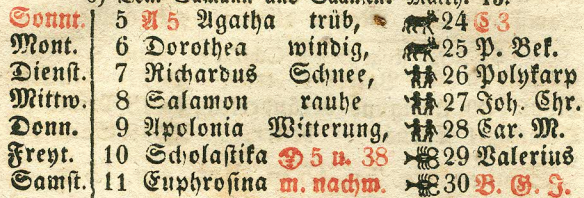 Sonnt. 5 A 5 Agatha trüb, 24 E 3
Mont. 6 Dorothea windig, 25 P. Bek.
Dienst. 7 Richardus Schnee, 26 Polykarp
Mittw. 8 Salamon rauhe 27 Joh. Chr.
Donn. 9 Apolonia Witterung, 28 Car. M.
Freyt. 10 Scholastika 5 u. 38 29 Valerius
Samst. 11 Euphrosina m. nachm. 30 B. G. J.